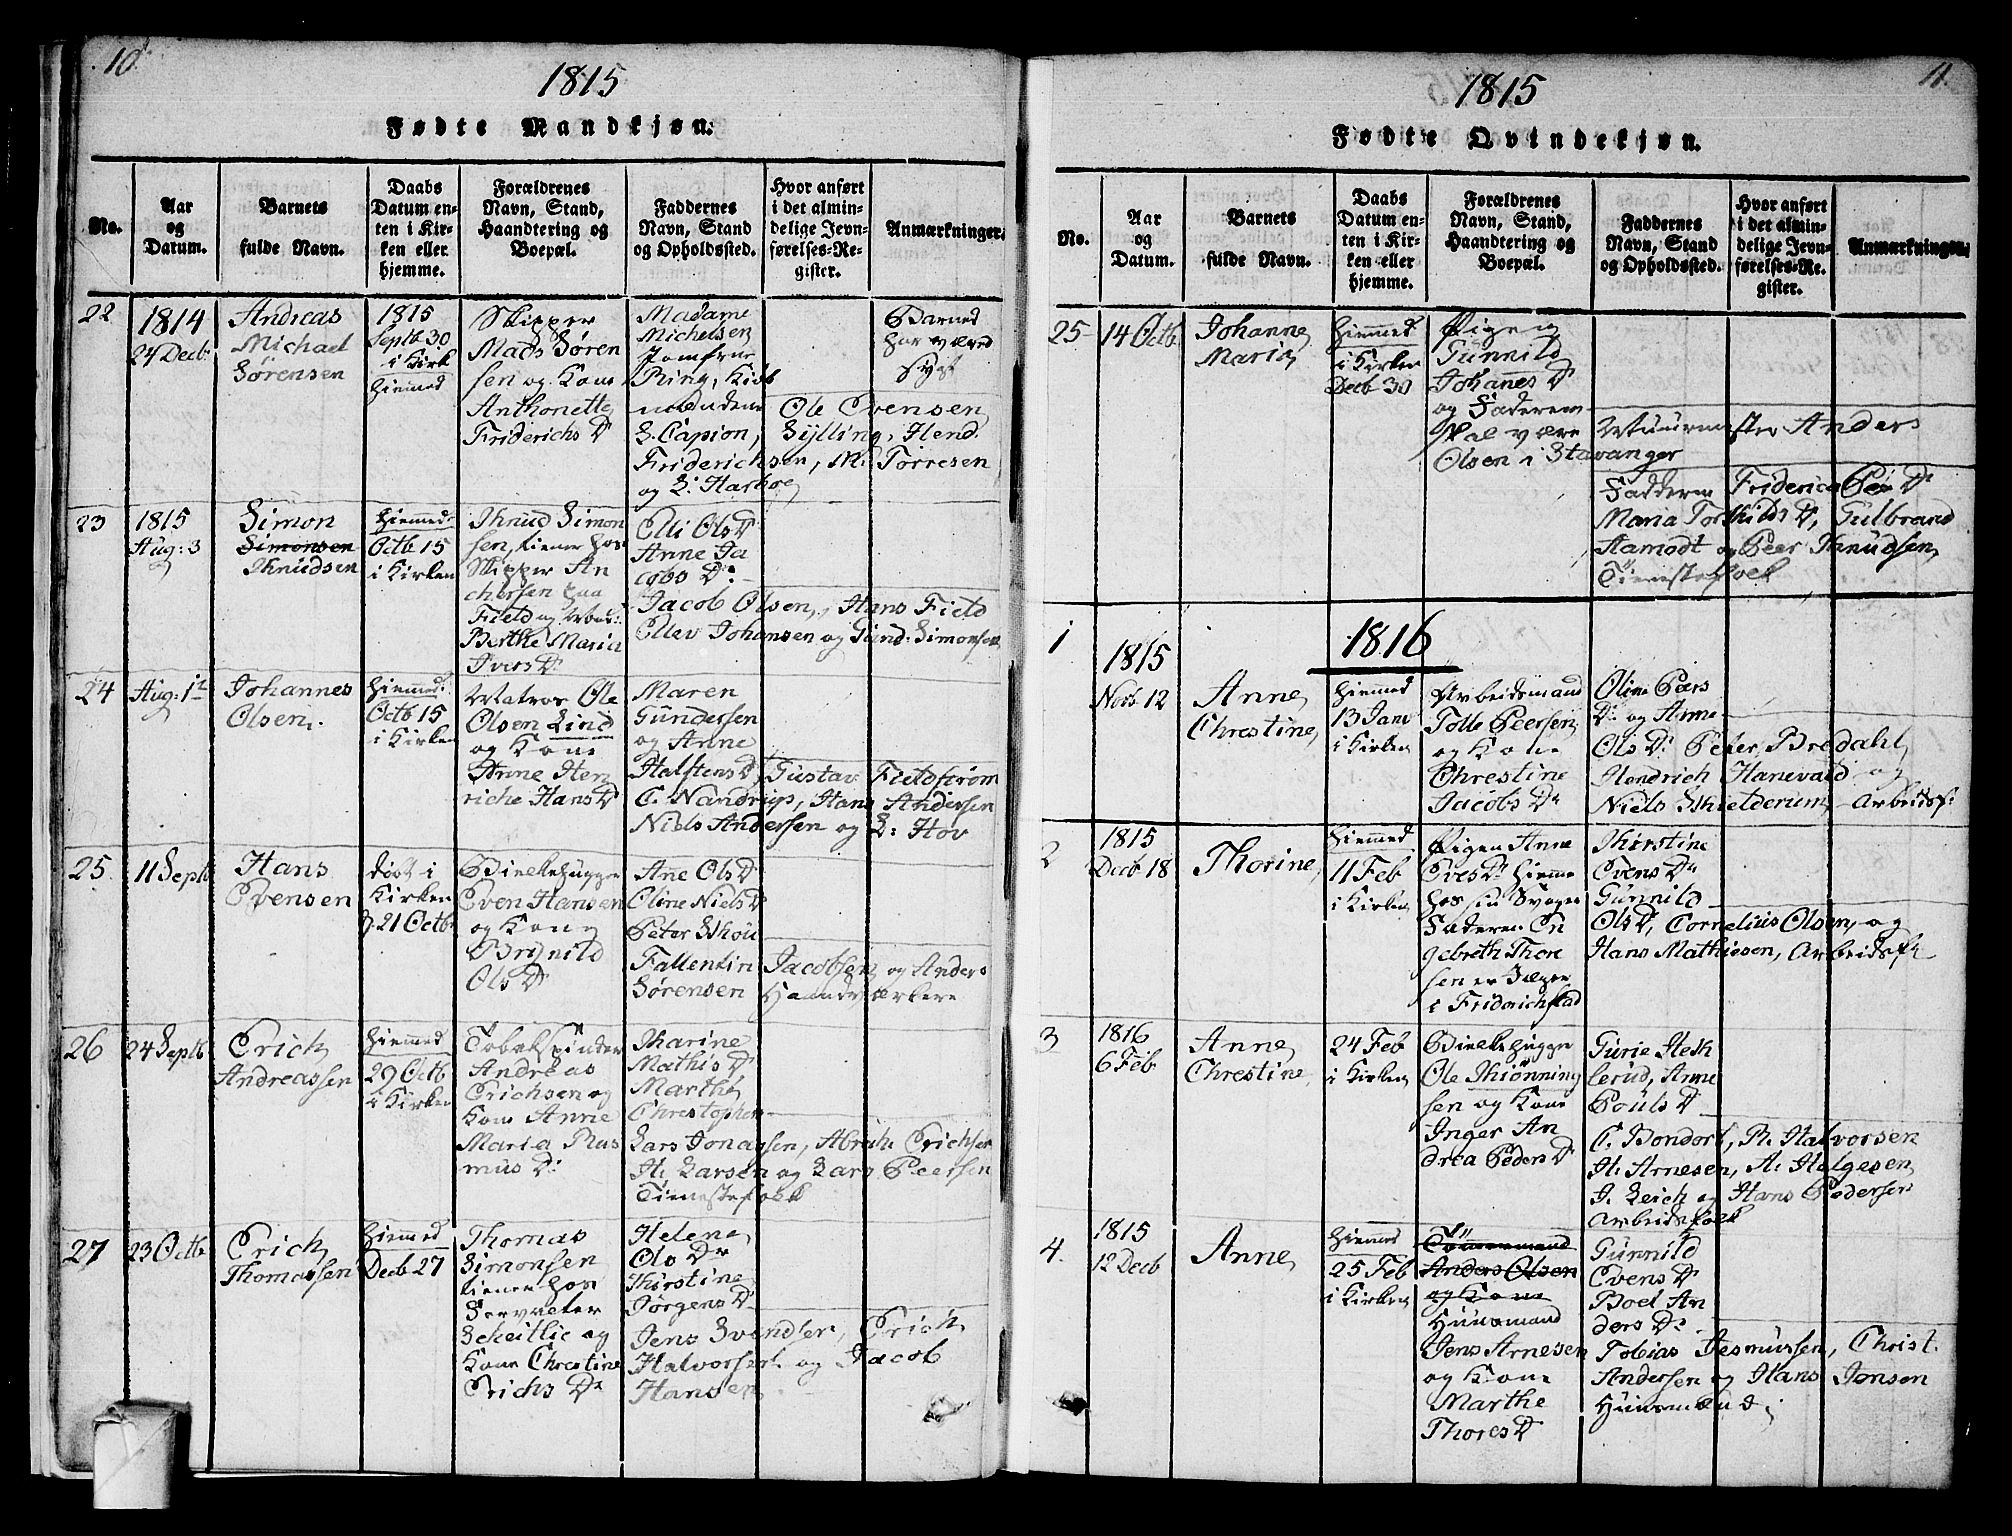 10.
1815
Fødte Mandkjøn.
No.
Aar
og
Datum.
Barnets
fulde Navn.
Daabs
Datum en-
ten i Kir-
ken eller
hjemme.
Forældrenes
Navn, Stand,
Haandtering og
Boepæl.
Faddernes
Navn, Stand
og Opholdssted.
Hvor anført
i det almin-
delige Jevn-
førelses-Re-
gister.
Anmærkninger.
22
1814
24 Decbr
Andreas
Michael
Sørensen
1815
Septb 30
i Kirk
hiemmed
Skipper
Mads Søren
sen og Kone
Anthonette
Friderichs Dr
Madame
Michelsen
Jomfrue
Ring, Kiøb
mændene
S. Capion, Sylling, Hend.
Friderichsen, M. Torresen
og L: Harboe
Ole Evensen
Barned
har været
Sygt
23
1815
Aug: 3
Simon
Simonsen
Knudsen
hiemmed:
Octb 15
i Kirken
Knud Simon
sen, tiener hos
Skipper An
chersen paa
Field og
Berthe Maria
Ivers Dr
Elli Ols Dr
Anne Ja
cobs Dr:
Jacob Olsen, Hans Field
Ellev Johansen og Gund: Simonsen
24
Aug: 1st
Johannes
Olsen.
hiemmed:
Octb 15
i Kirken
Matros Ole
Olsen Lind
og Kone
Anne Hen
riche Hans Dr
Maren
Gundersen
og Anne
Halstens Dr Gustav Fieldstrøm
C. Nandrup, Hans Andersen
Niels Andersen og L: Hov
25
11 Septb
Hans
Evensen
døbt i
Kirken
d. 21 Octb
Bielkehugger
Even Hansen
og Kone
Brynild
Ols Dr
Ane Ols Dr
Oline Niels Dr
Peter Skou
Fallentin Jacobsen og Anders
Sørensen Haandværkere
26
24 Septb
Erich
Andreassen
hiemmed
29 Octb
i Kirken
Tobakspinder
Andreas
Erichsen og
Kone Anne
Maria Ras
mus Dr
Karine
Mathis Dr
Marthe
Christophers
Lars Jonassen, Abrah. Erichsen
H. Larsen og Lars Peersen
Tienestefolk
27
23 Octb
Erich
Thomassen
hiemmed
Decb 27
Thomas
Simonsen
tiener hos
Scheitlie og
Kone Chrestine
Erichs Dr
Helene
Ols Dr
Kirstine
Jørgens Dr
Jens Svendler, Erich
Halvorsen og Jacob
Hansen
11.
1815
Fødte Qvindekjøn.
No.
Aar
og
Datum.
Barnets
fulde Navn.
Daabs
Datum en-
ten i Kir-
ken eller
hjemme.
Forældrenes
Navn, Stand,
Haandtering og
Boepæl.
Faddernes
Navn, Stand
og Opholdssted.
Hvor anført
i det almin-
delige Jevn-
førelses-Re-
gister.
Anmærkninger.
25
14 Octb
Johanne
Maria
hiemmed:
i Kirken
Decb 30
Pigen
Gunnild
Johanes Dr
og Faderen
skal være Muurmester Anders
Olsen i Stavanger
Faddere Friderica Dr
Maria Torkilds Dr, Gulbrand
Aamodt og Peer Knudsen
Tienestefolk
1816
1
1815
Novb 12
Anne
Chrestine
hiemmed
13 Janv
i Kirken
Arbeidsmand
Tolle Peersen
og Kone
Chrestine
Jacobs Dr
Oline Peers
Dr og Anne
Ols Dr Peter Bredahl
Hendrich Hanevald og
Niels Skielderum, Arbeidsf:
2
1815
Decb 18
Thorine
hiemmed
11 Feb
i Kirken
Pigen Anne
Eves Dr hiemme
hos sin Svoger
Faderen En
gebreth Thore
sen er Jæger
i Friderichstad
Kirstine
Evens Dr
Gunnild
Ols Dr, Cornelius Olsen, og
Hans Mathissen, Arbeidsfk
3
1816
6 Feb
Anne
Chrestine
24 Feb
i Kirken
Bielkehugger
Ole Kiønning
sen og Kone
Inger An
drea Peders Dr
Gurie Hesk
lerud, Anne
Pouls Dr
C. Bondorf, P. Halvorsen
H. Arnesen, A. Helgesen
J. Leich og Hans Pedersen
Arbeidsfolk
4.
1815
12 Decb
Anne
hiemmed
25 Feb
i Kirken
Tømmermand
Anders Olsen
og Kone
Huusmand
Jens Arnesen
og Kone
Marthe
Thores Dr
Gunnild
Evens Dr
Boel An
ders Dr
Tobias Jesmussen, Christ.
Andersen og Hans Jonsen
Huusmænd;